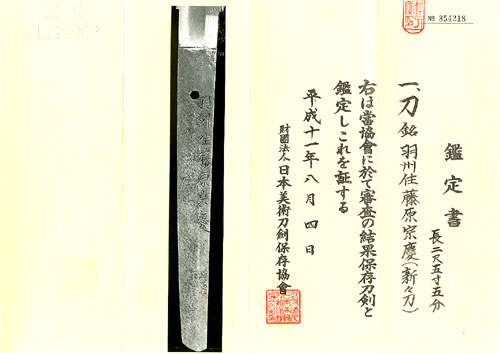 № 354218
鑑定書
長二尺五寸五分
一、刀 銘 羽州住藤原宗慶(新々刀)
右は當協會に於て審査の結果保存刀剣と
鑑定しこれを証する
平成十一年八月四日
財團法人日本美術刀剣保存協會
羽州住藤原宗慶